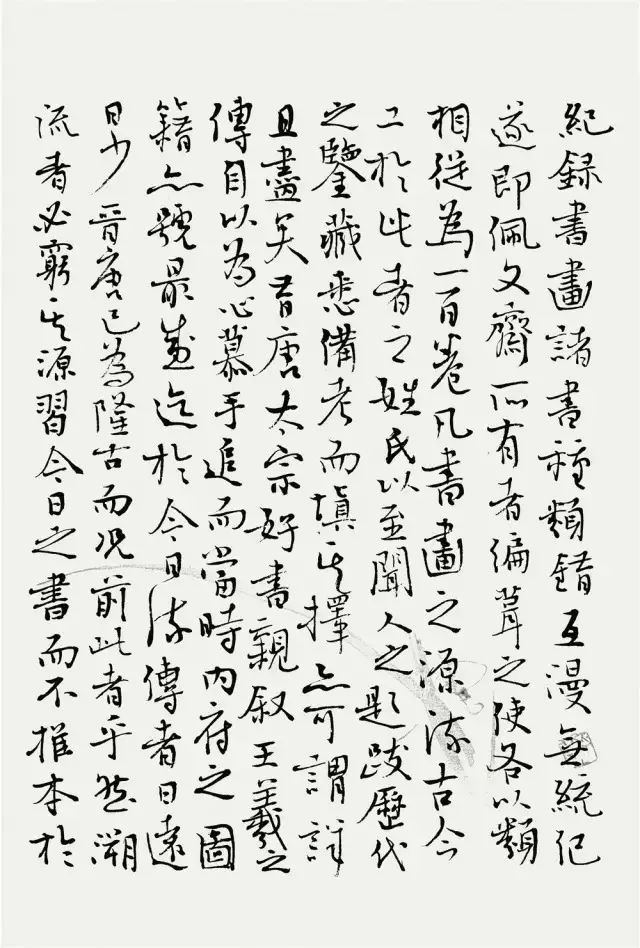 紀録書畫諸書種類錯互漫無統紀
遂即佩文齋所有者編葺之使各以類
相從為一百卷凡書畫之源流古今
工於此者之姓氏以至聞人之題跋歷代
之鑒藏悉備考而慎其擇亦可謂詳
且盡矣昔唐太宗好書親叙王羲之
傳自以為心慕手追而當時内府之圖
籍亦號最盛迄於今日流傳者日遠
日少晉唐已為隆古而況前此者乎然溯
流者必窮其源習今日之書而不推本於